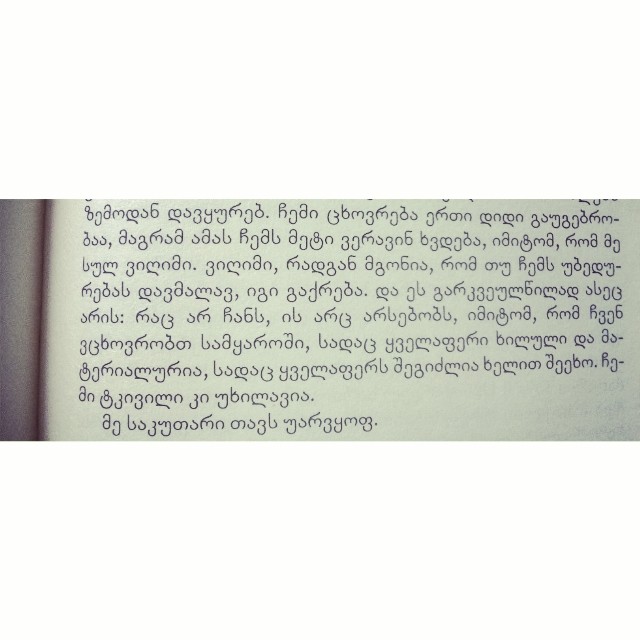 ზემოდან დავყურებ. ჩემი ცხოვრება ერთი დიდი გაუგებრო-
ბაა, მაგრამ ამას ჩემს მეტი ვერავინ ხვდება, იმიტომ, რომ მე
სულ ვიღიმი. ვიღიმი, რადგან მგონია, რომ თუ ჩემს უბედუ-
რებას დავმალავ, იგი გაქრება. და ეს გარკვეულწილად ასეც
არის: რაც არ ჩანს, ის არც არსებობს, იმიტომ, რომ ჩვენ
ვცხოვრობთ სამყაროში, სადაც ყველაფერი ხილული და მა-
ტერიალურია, სადაც ყველაფერს შეგიძლია ხელით შეეხო. ჩე-
მი ტკივილი კი უხილავია.
მე საკუთარი თავს უარვყოფ.